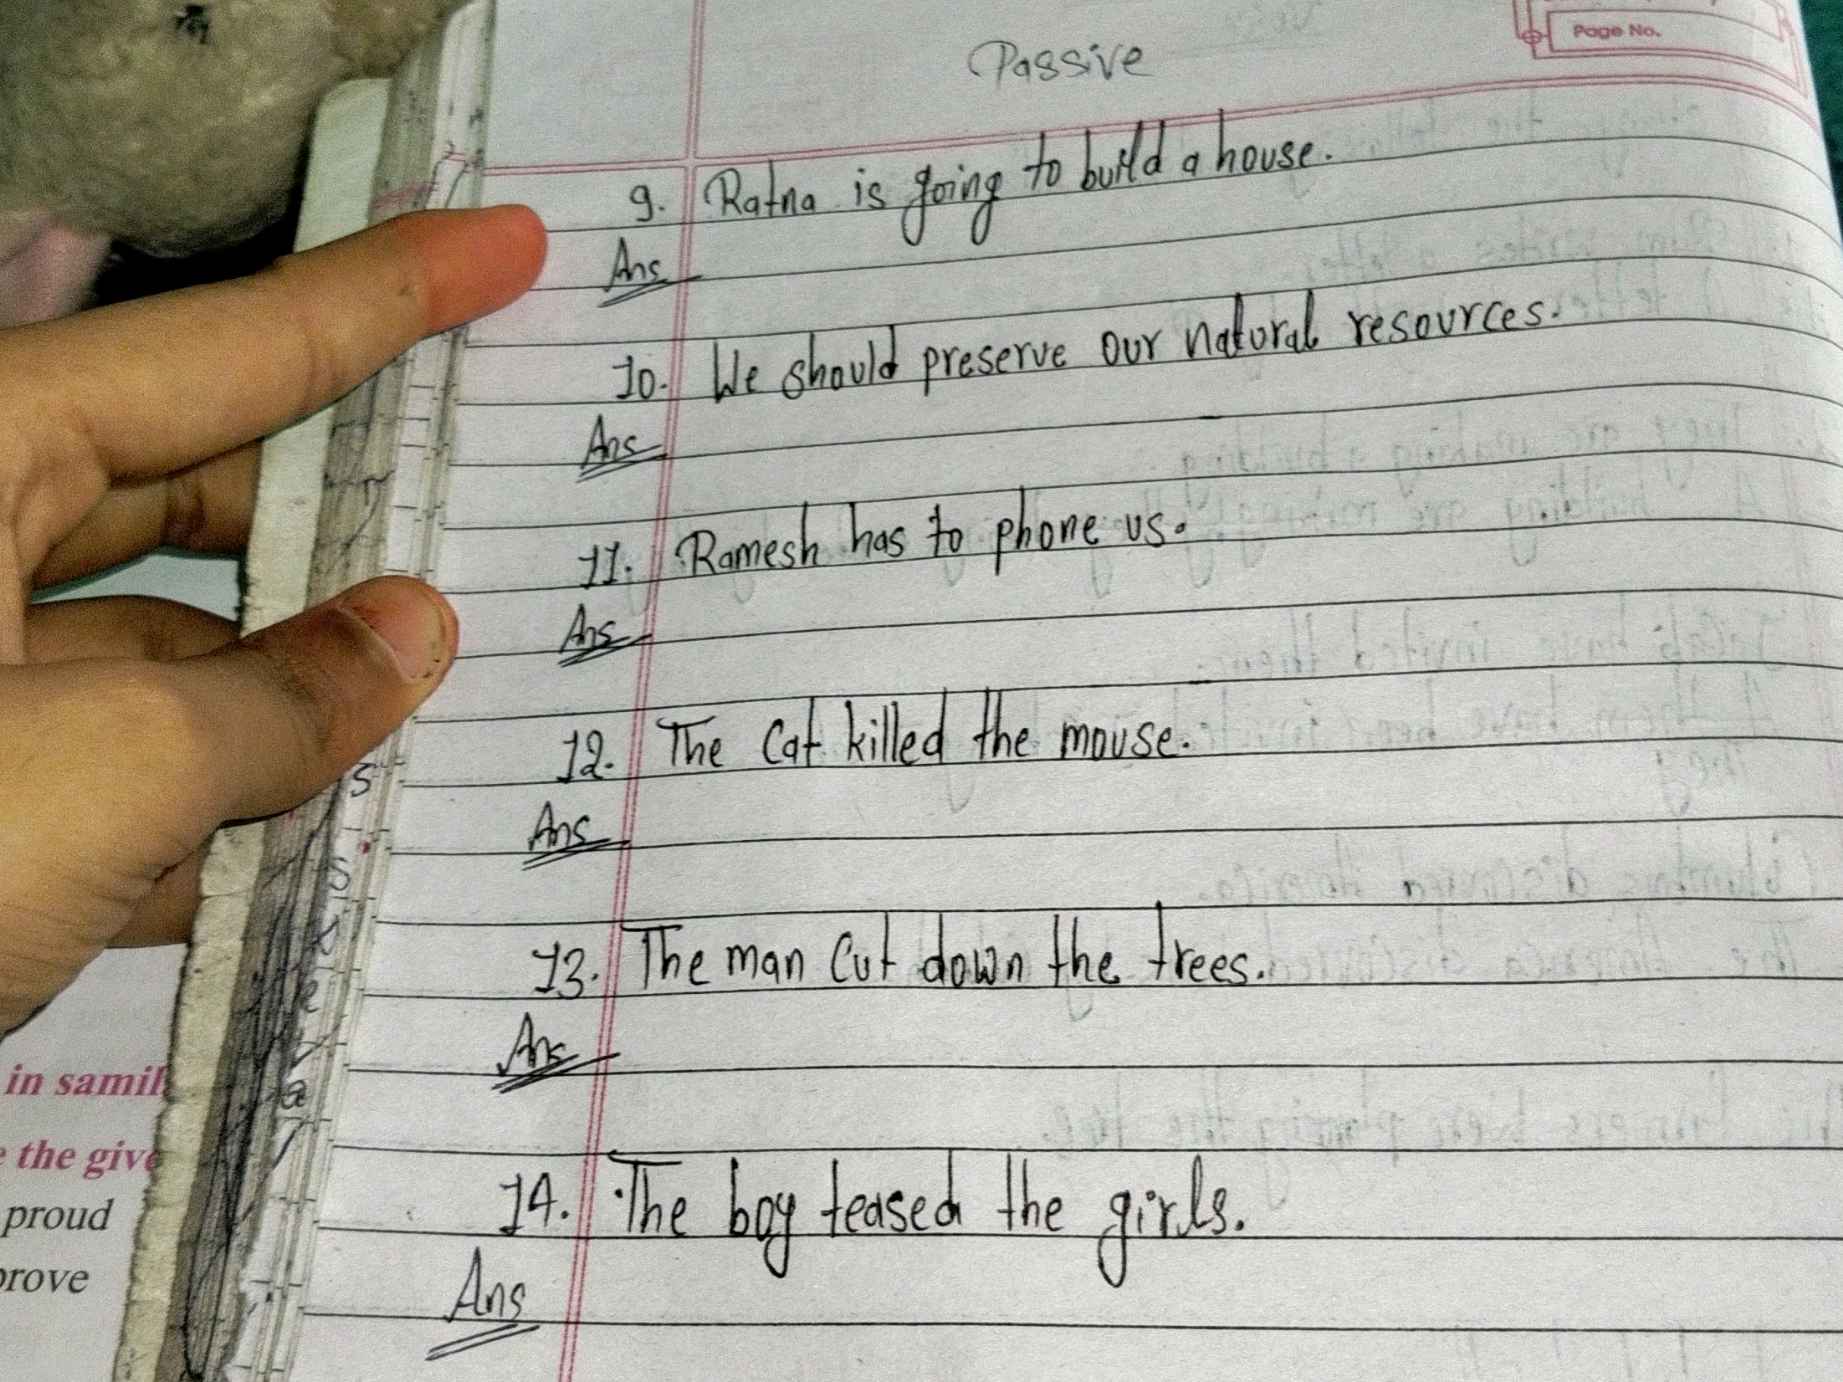 Page No.
Passive
9. Ratna is going to build a house.
Ans
10. We should preserve our natural resources.
Ans
11. Ramesh has to phone us.
Ans
12. The Cat killed the mouse.
Ans
13. The man cut down the trees.
Ans
14. The boy teased the girls.
Ans
in samil
the give
proud
prove